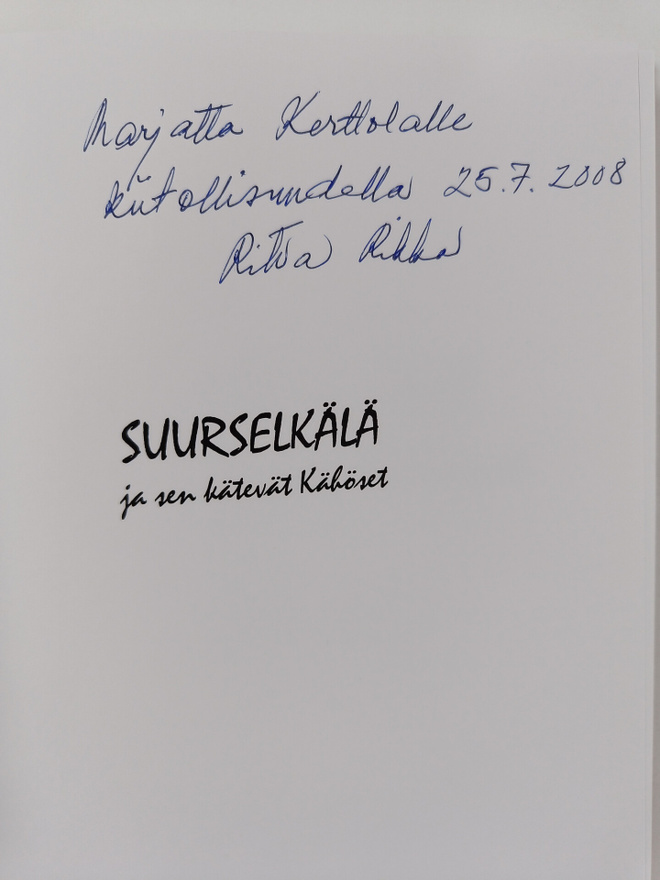 Marjatta Kerttolalle
kiitollisuudella 25.7. 2008
Ritva Rikka
SUURSELKÄLÄ
ja sen kätevät Kähöset